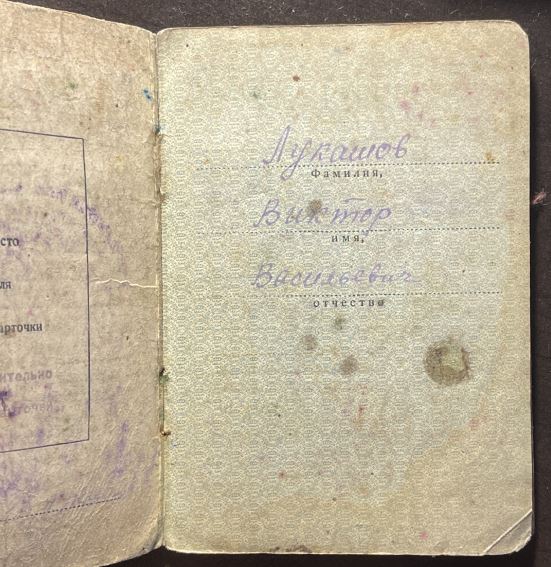 сто
ля
арточки
Лукашов
Фамилия,
Виктор
имя,
Васильевич
отчество